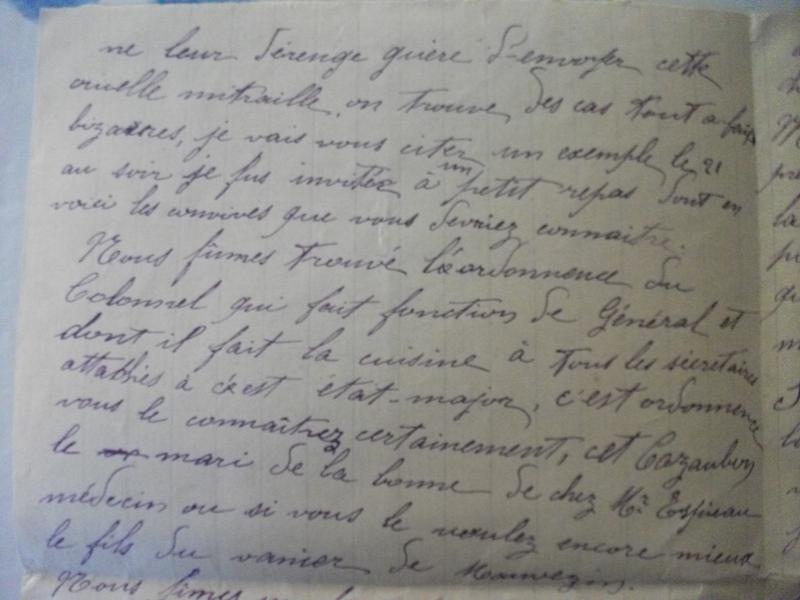 ne leur dérenge guère d'envoyer cette
cruelle mitraille, on trouve des cas tout a fait
bizarres, je vais vous citer un exemple le 21
au soir je fus invitéz à un petit repas dont en
voici les convives que vous devriez connaitre.
Nous fûmes trouvé l'ordonnence du
Colonnel qui fait fonction de Général et
dont il fait la cuisine à tous les sécretaires
attachés à c'est état-major, c'est ordonnence
vous le connaîtrez certainement, cet Cazaubon
le mari de la bonne de chez Mr Espieau
médecin ou si vous le voulez encore mieux
le fils du vanier de Mauvezin.
Nous fîmes